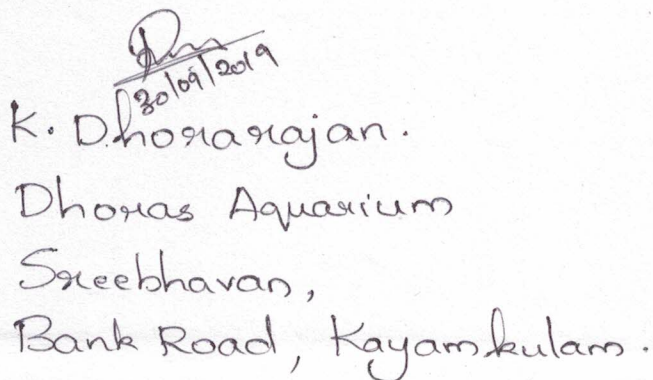 30/09/2019
K. Dhorarajan.
Dhoras Aquarium
Sreebhavan,
Bank Road, Kayamkulam.